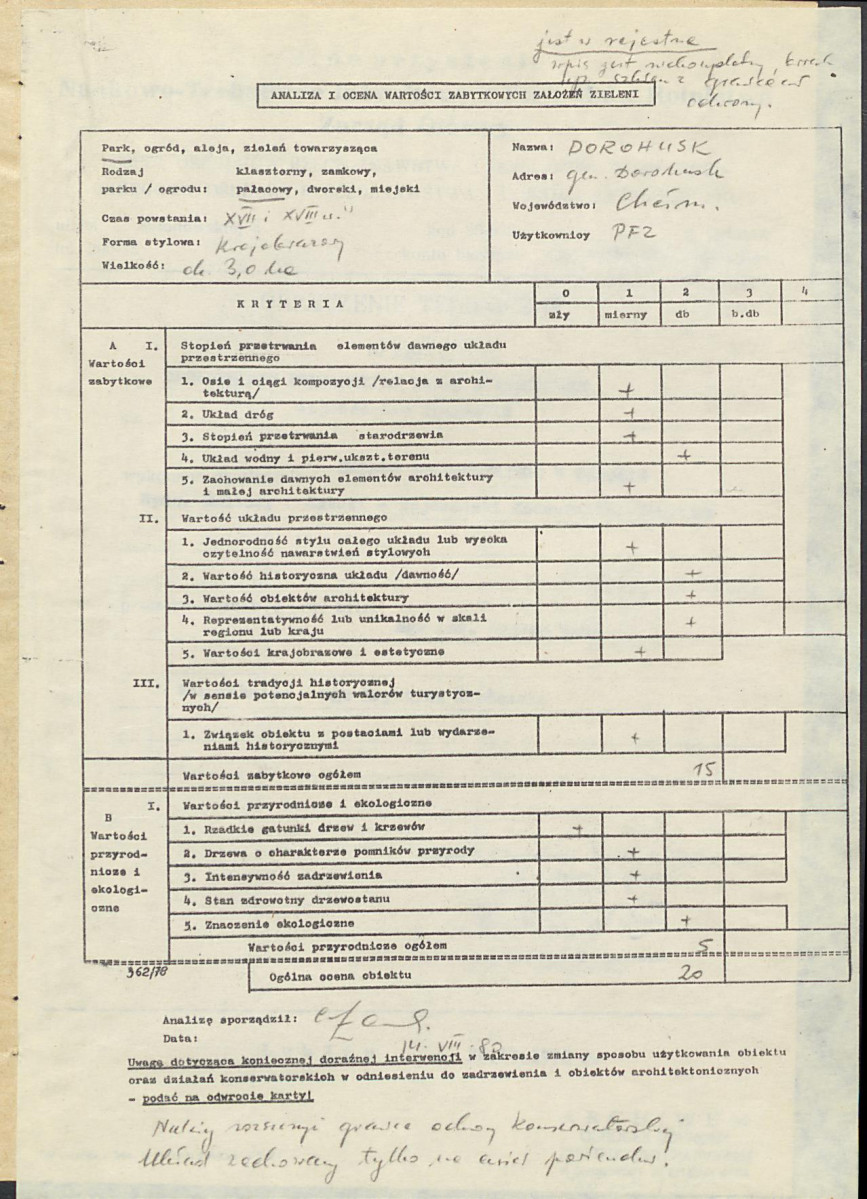 jest w rejestrze
wpis jest niekompletny, brak
granic
ochrony.
ANALIZA I OCENA WARTOŚCI ZABYTKOWYCH ZAŁOŻEŃ ZIELENI
Park, ogród, aleja, zieleń towarzysząca
Rodzaj klasztorny, zamkowy,
parku / ogrodu: pałacowy, dworski, miejski
Czas powstania: XVII i XVIII w.
Forma stylowa: Krajobrazowy
Wielkość: ok. 3,0 ha
Nazwa: DOROHUSK
Adres: gm. Dorohusk
Województwo: Chełm.
Użytkownicy PFZ
KRYTERIA
0 1 2 3 4
zły mierny db b.db
A I. Stopień przetrwania elementów dawnego układu
Wartości przestrzennego
zabytkowe 1. Osie i ciągi kompozycji /relacja z archi-
tekturą/ +
2. Układ dróg +
3. Stopień przetrwania starodrzewia +
4. Układ wodny i pierw.ukszt.terenu +
5. Zachowanie dawnych elementów architektury
i małej architektury +
II. Wartość układu przestrzennego
1. Jednorodność stylu całego układu lub wysoka
czytelność nawarstwień stylowych +
2. Wartość historyczna układu /dawność/ +
3. Wartość obiektów architektury +
4. Reprezentatywność lub unikalność w skali
regionu lub kraju +
5. Wartości krajobrazowe i estetyczne +
III. Wartości tradycji historycznej
/w sensie potencjalnych walorów turystycz-
nych/
1. Związek obiektu z postaciami lub wydarze-
niami historycznymi +
Wartości zabytkowe ogółem 15
I. Wartości przyrodnicze i ekologiczne
B
Wartości 1. Rzadkie gatunki drzew i krzewów +
przyrod- 2. Drzewa o charakterze pomników przyrody +
nicze i 3. Intensywność zadrzewienia +
ekologi- 4. Stan zdrowotny drzewostanu +
czne 5. Znaczenie ekologiczne +
Wartości przyrodnicze ogółem 5
362/78 Ogólna ocena obiektu 20
Analizę sporządził:
Data: 14. VIII. 80
Uwagę dotycząca koniecznej doraźnej interwencji w zakresie zmiany sposobu użytkowania obiektu
oraz działań konserwatorskich w odniesieniu do zadrzewienia i obiektów architektonicznych
- podać na odwrocie karty!
Należy rozszerzyć granice ochrony konserwatorskiej
Układ zachowany tylko na osi